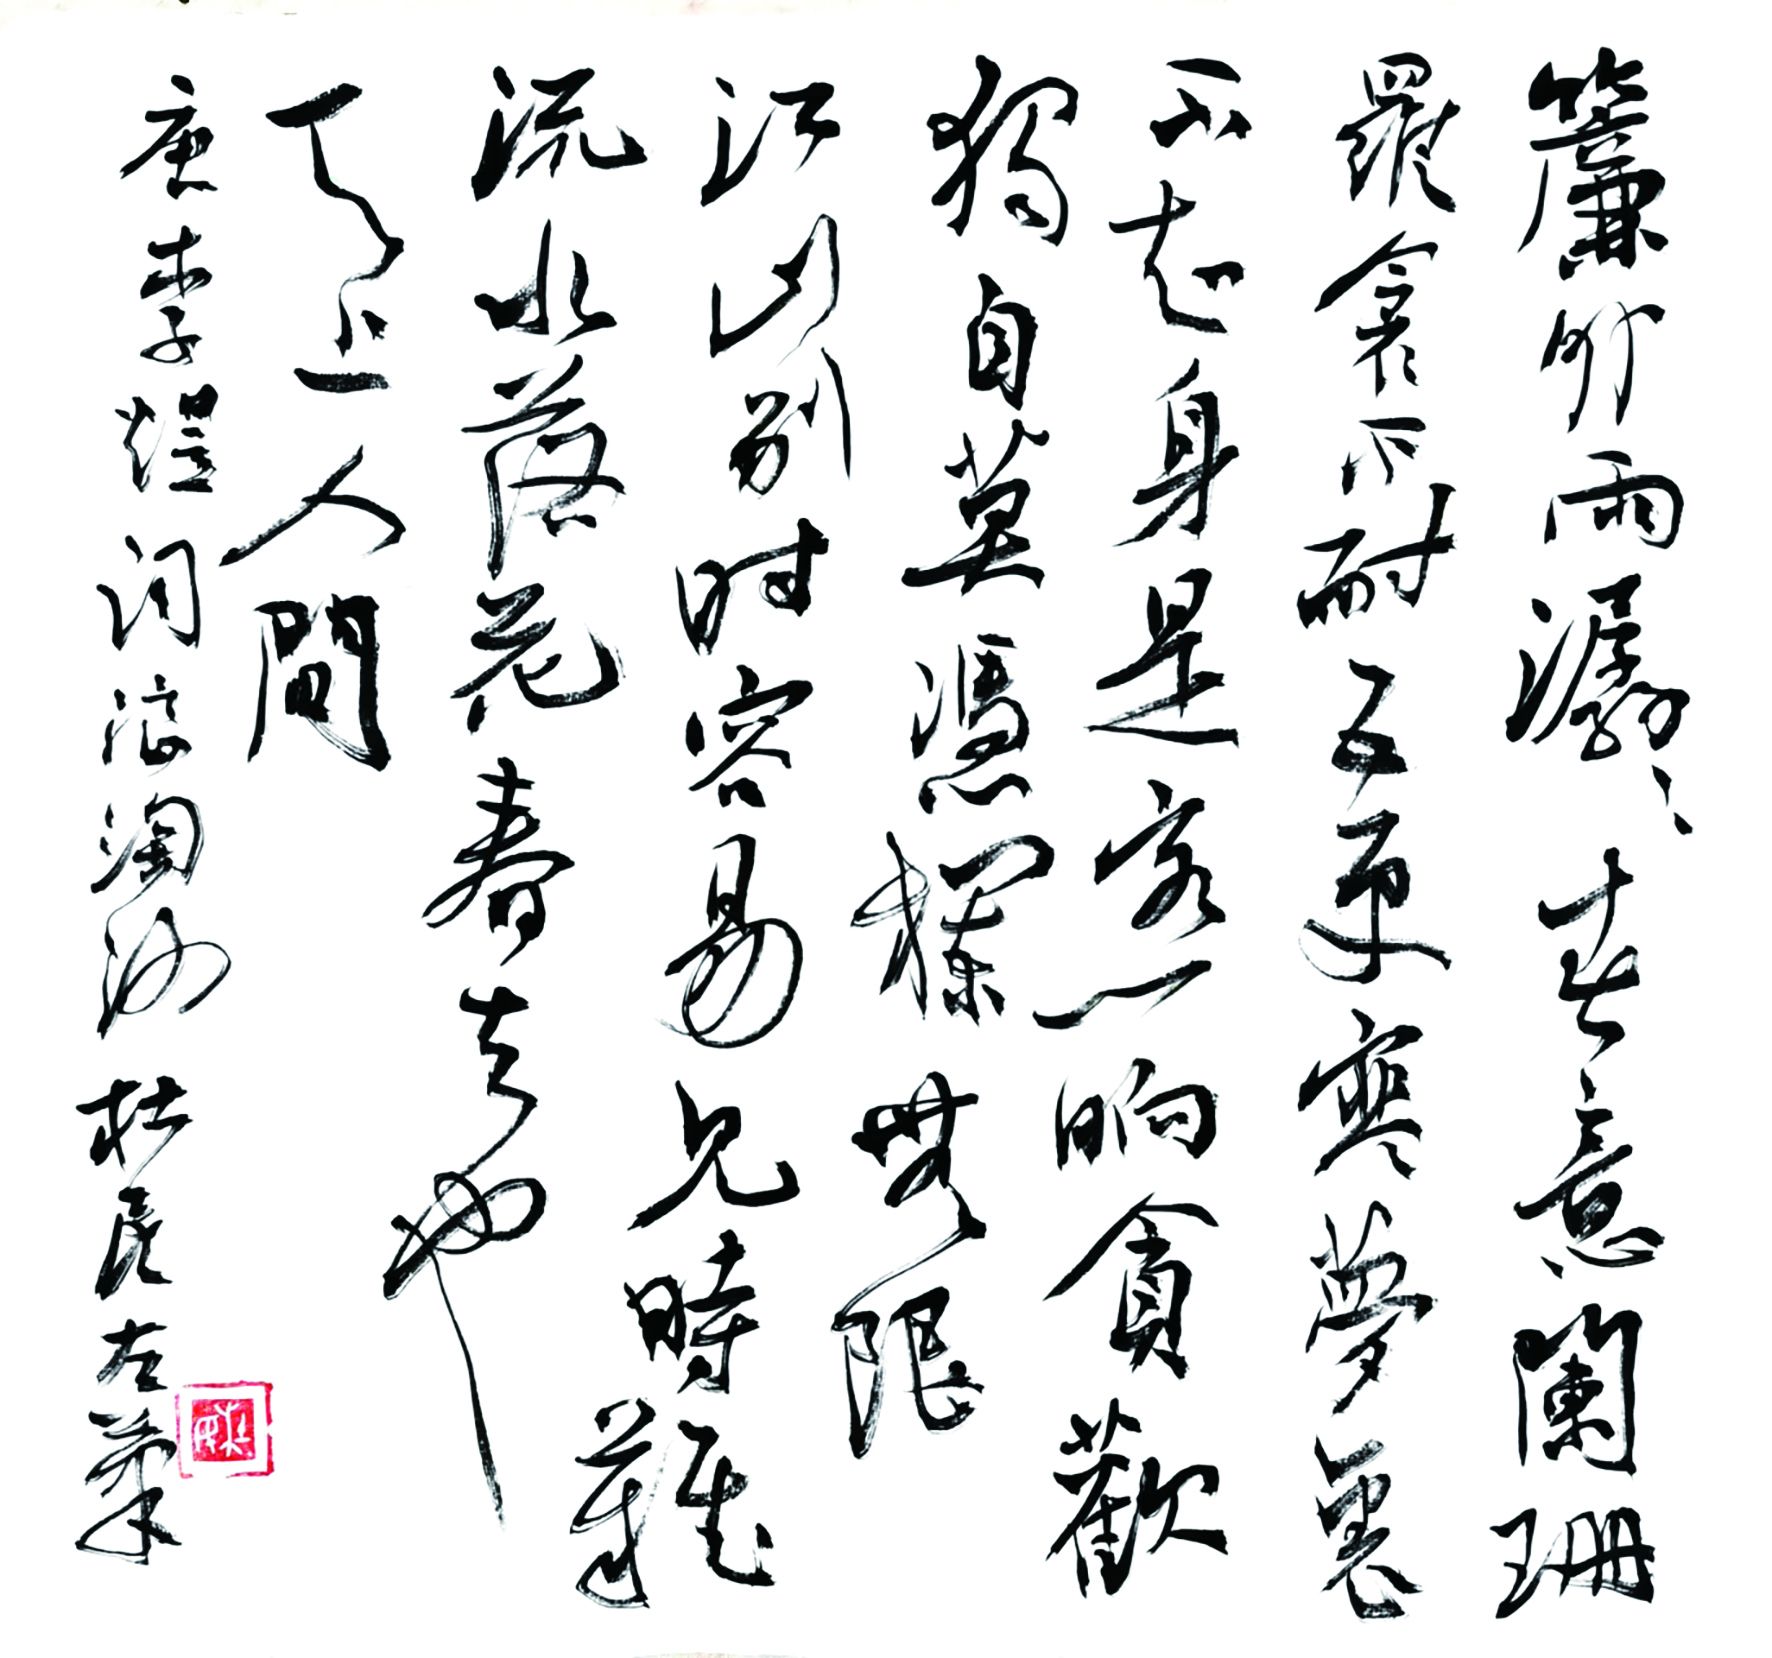 簾外雨潺〻春意闌珊
羅衾不耐五更寒夢裏
不知身是客一晌貪歡
獨自莫憑欄無限
江山別时容易見時難
流水落花春去也
天上人間
唐李煜词浪淘沙 杜辰左筆